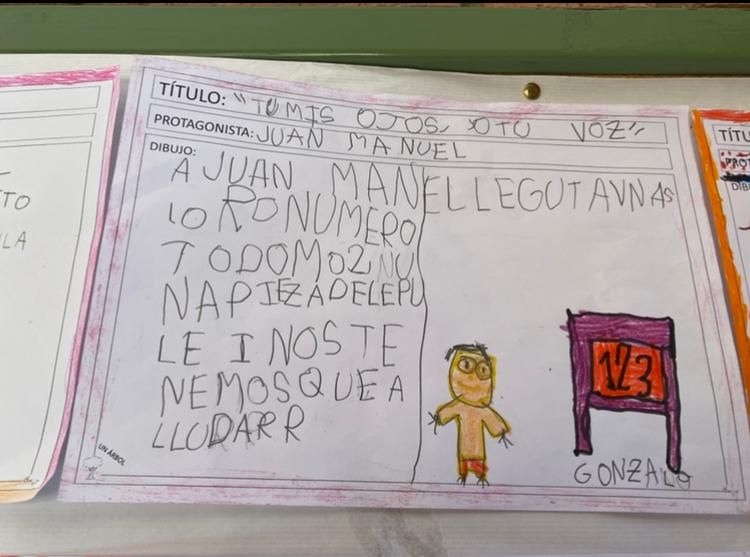 TÍTULO: "TU MIS OJOS, YO TU VOZ"
PROTAGONISTA: JUAN MANUEL
DIBUJO:
A JUAN MANUEL LE GUTA UN AS
LO RO NUMERO
TODOMOZ NU
NA PIEZA DELEPU
LE I NOS TE
NEMOS QUE A
LLUDARR
UN ÁRBOL
123
GONZALO
TO
LA
TÍT
PRO
DIB